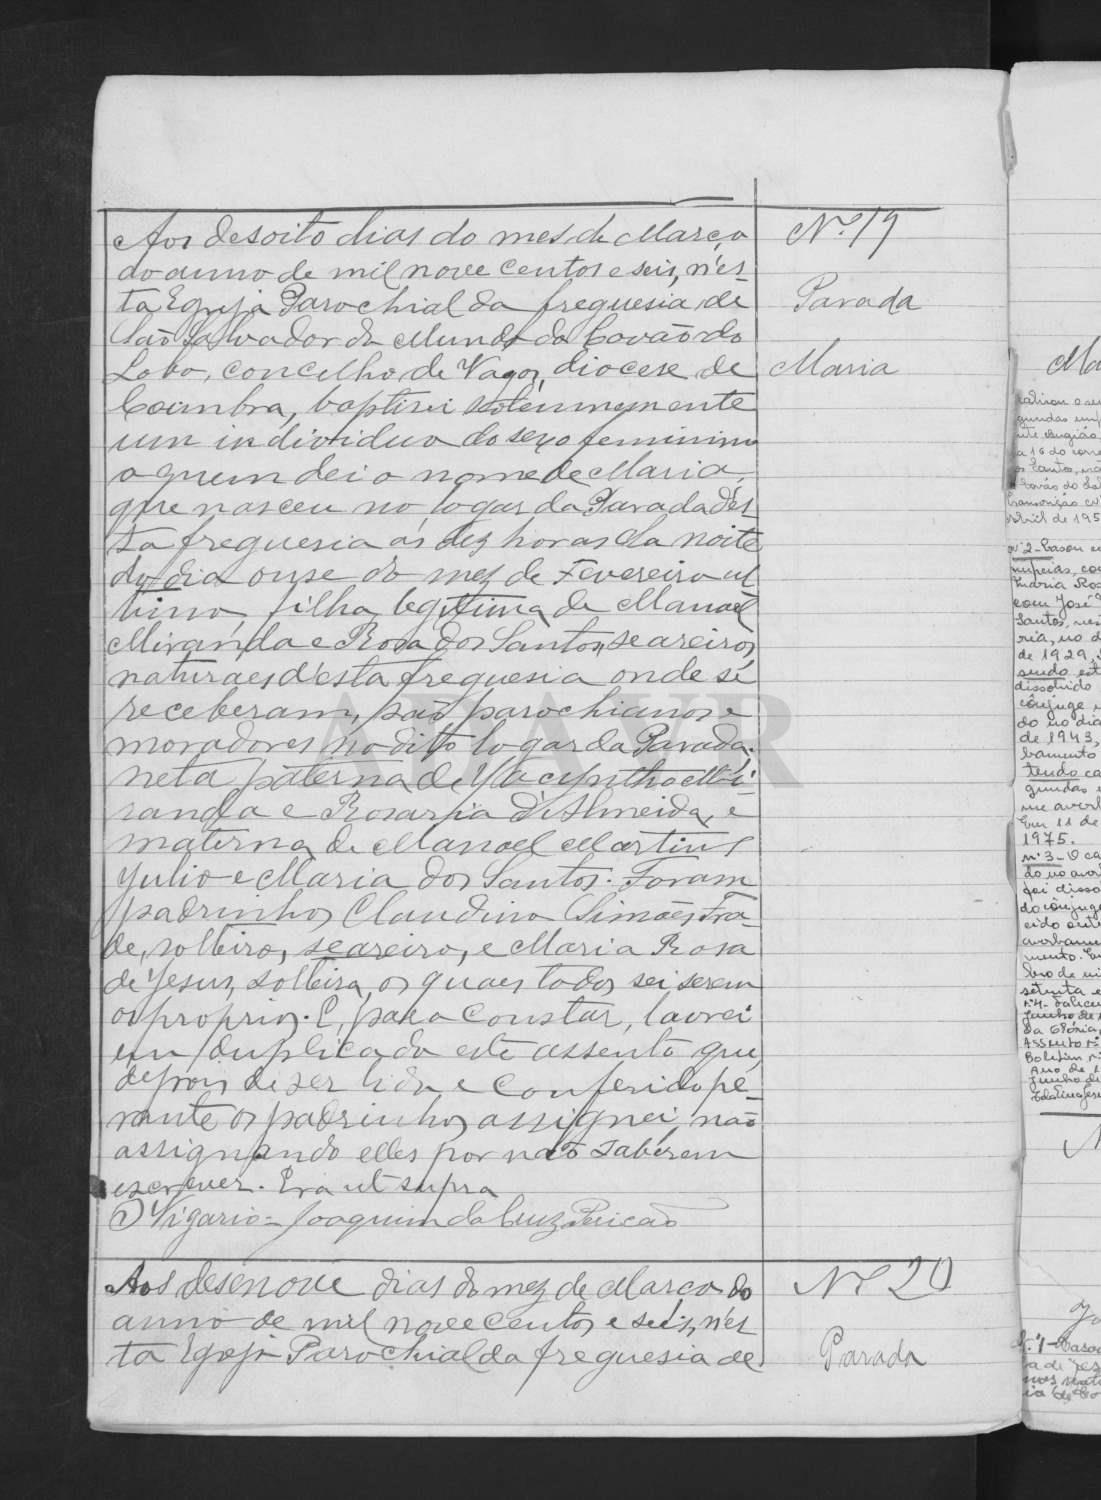 Aos desoito dias do mes de Março
do anno de mil nove centos e seis, n'es-
ta Egreja Parochial da freguesia de
São Salvador do Mundo do Covão do
Lobo, concelho de Vagos, diocese de
Coimbra, baptisei solemnemente
um individuo do sexo feminino
a quem dei o nome de Maria,
que nasceu no logar da Parada d'es-
ta freguesia ás dez horas da noite
do dia onse do mez de Fevereiro ul
timo, filha legitima de Manoel
Miranda e Rosa dos Santos, seareiros,
naturaes d'esta freguesia onde se
receberam, são parochianos e
moradores no dito logar da Parada;
neta paterna de Yacyntho Mi-
randa e Rosaria d'Almeida, e
materna de Manoel Martins
Yulio e Maria dos Santos. Foram
padrinhos Claudino Simões Fra-
de, solteiro, seareiro, e Maria Rosa
de Yesus, solteira, os quaes todos sei serem
os proprios. E, para constar, lavrei
em duplicado este assento que,
depois de ser lido e conferido pe-
rante os padrinhos assignei, não
assignando elles por não saberem
escrever. Era ut supra
O Vigario = Joaquim da Cruz
Nº 19
Parada
Maria
Aos desenove dias do mez de Março do
anno de mil nove centos e seis, n'es
ta Egreja Parochial da freguesia de
Nº 20
Parada
ADAVR
nº 2 - Casou
Maria Ros
com José
Santos,
ria, no d
de 1929,
sendo
dissolvido
cônjuge
do no dia
de 1943,
bamento
tendo ca
gundas
Em 11 de
1975.
nº 3 - O ca
foi disso
do cônjuge
mento.
setenta e
Junho de
da Glória,
Assento nº
Boletim nº
Ano de 1
Junho de